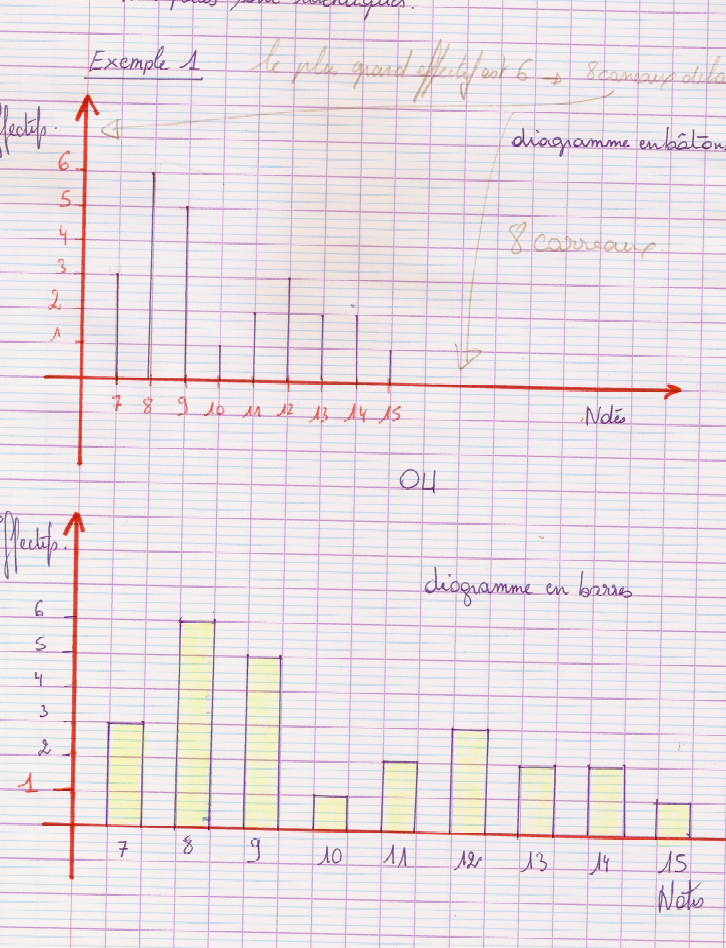 identiques.
Exemple 1 le plus grand effectif est 6 → 8 carreaux de
diagramme en bâtons
6
5
8 carreaux
4
3
2
1
7 8 9 10 11 12 13 14 15
Notes
OU
diagramme en barres
6
5
4
3
2
1
7 8 9 10 11 12 13 14 15
Notes